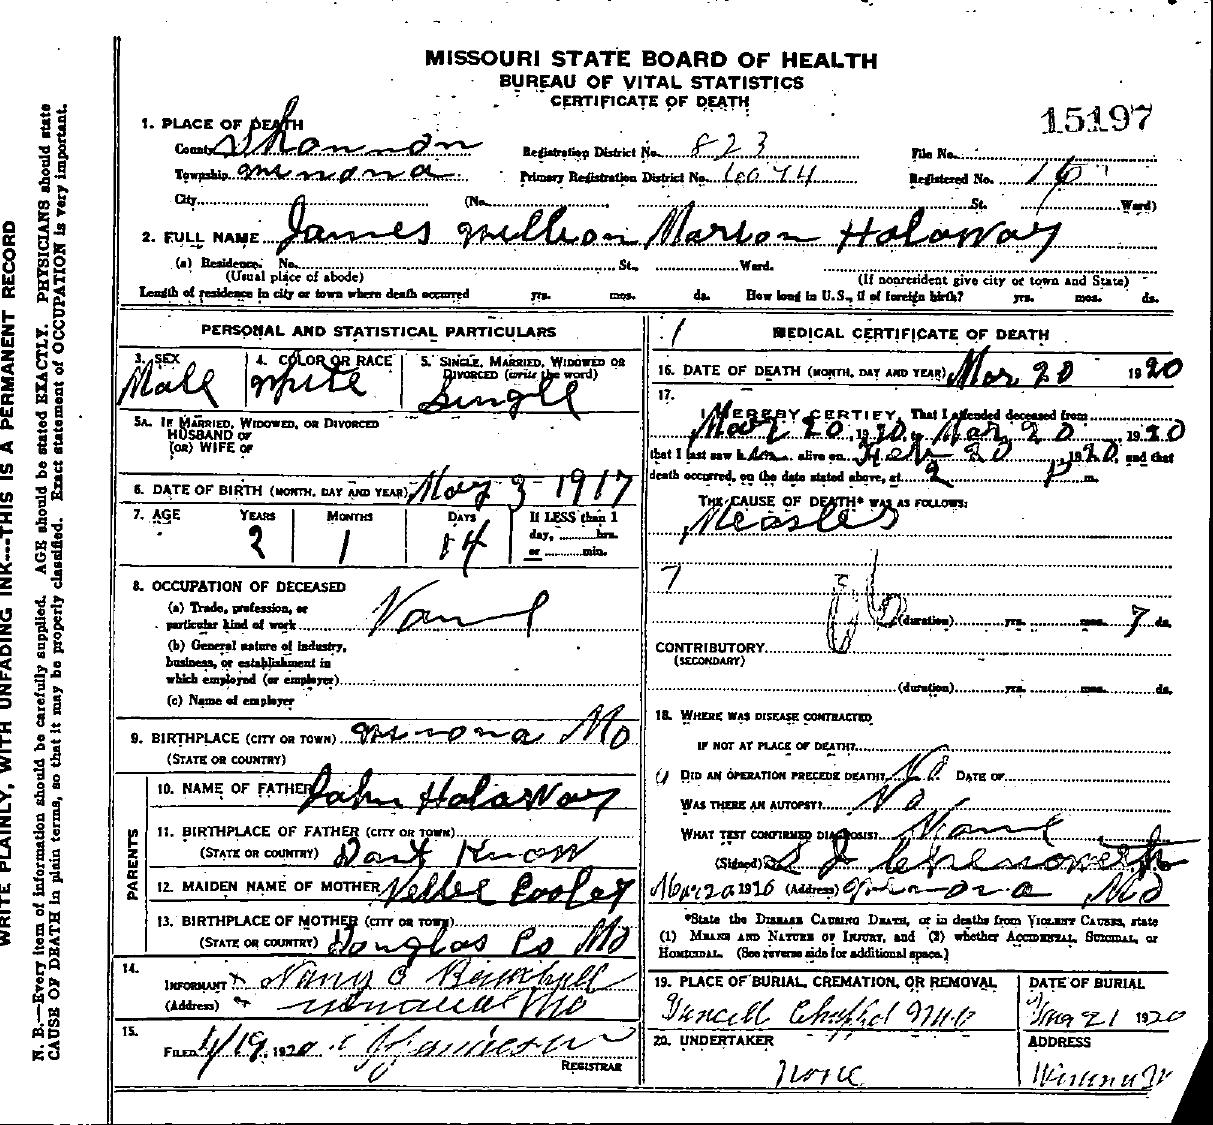 MISSOURI STATE BOARD OF HEALTH
BUREAU OF VITAL STATISTICS
CERTIFICATE OF DEATH
15197
1. PLACE OF DEATH
County Shannon Registration District No. 823 File No.
Township Winona Primary Registration District No. Registered No.
City (No. , St. Ward)
2. FULL NAME James Marion Holaway
(a) Residence. No. St., Ward.
(Usual place of abode) (If nonresident give city or town and State)
Length of residence in city or town where death occurred yrs. mos. ds. How long in U.S., if of foreign birth? yrs. mos. ds.
PERSONAL AND STATISTICAL PARTICULARS
3. SEX Male
4. COLOR OR RACE White
5. SINGLE, MARRIED, WIDOWED OR
DIVORCED (write the word) Single
5A. IF MARRIED, WIDOWED, OR DIVORCED
HUSBAND OF
(OR) WIFE OF
6. DATE OF BIRTH (MONTH, DAY AND YEAR) May 3 1917
7. AGE YEARS MONTHS DAYS If LESS than 1
day, hrs.
or min.
2 1 14
8. OCCUPATION OF DECEASED
(a) Trade, profession, or
particular kind of work None
(b) General nature of industry,
business, or establishment in
which employed (or employer)
(c) Name of employer
9. BIRTHPLACE (CITY OR TOWN) Winona Mo
(STATE OR COUNTRY)
PARENTS
10. NAME OF FATHER John Holaway
11. BIRTHPLACE OF FATHER (CITY OR TOWN)
(STATE OR COUNTRY) Dont Know
12. MAIDEN NAME OF MOTHER Cooley
13. BIRTHPLACE OF MOTHER (CITY OR TOWN)
(STATE OR COUNTRY) Douglas Co Mo
14.
INFORMANT Nancy C
(Address) Winona Mo
15.
FILED 4/19, 1920
REGISTRAR
MEDICAL CERTIFICATE OF DEATH
16. DATE OF DEATH (MONTH, DAY AND YEAR) Mar 20 1920
17.
I HEREBY CERTIFY, That I attended deceased from
Mar 20, 1920, Mar 20, 1920
that I last saw h alive on 20, 1920, and that
death occurred, on the date stated above, at 2 P m.
THE CAUSE OF DEATH* WAS AS FOLLOWS:
Measles
7
(duration) yrs. mos. 7 ds.
CONTRIBUTORY
(SECONDARY)
(duration) yrs. mos. ds.
18. WHERE WAS DISEASE CONTRACTED
IF NOT AT PLACE OF DEATH?
DID AN OPERATION PRECEDE DEATH? No DATE OF
WAS THERE AN AUTOPSY? No
WHAT TEST CONFIRMED DIAGNOSIS? None
(Signed)
Mar 20 1920 (Address) Winona Mo
*State the DISEASE CAUSING DEATH, or in deaths from VIOLENT CAUSES, state
(1) MEANS AND NATURE OF INJURY, and (2) whether ACCIDENTAL, SUICIDAL, or
HOMICIDAL. (See reverse side for additional space.)
19. PLACE OF BURIAL, CREMATION, OR REMOVAL DATE OF BURIAL
Mar 21 1920
20. UNDERTAKER ADDRESS
none
WRITE PLAINLY, WITH UNFADING INK---THIS IS A PERMANENT RECORD
N. B.—Every item of information should be carefully supplied. AGE should be stated EXACTLY. PHYSICIANS should state
CAUSE OF DEATH in plain terms, so that it may be properly classified. Exact statement of OCCUPATION is very important.